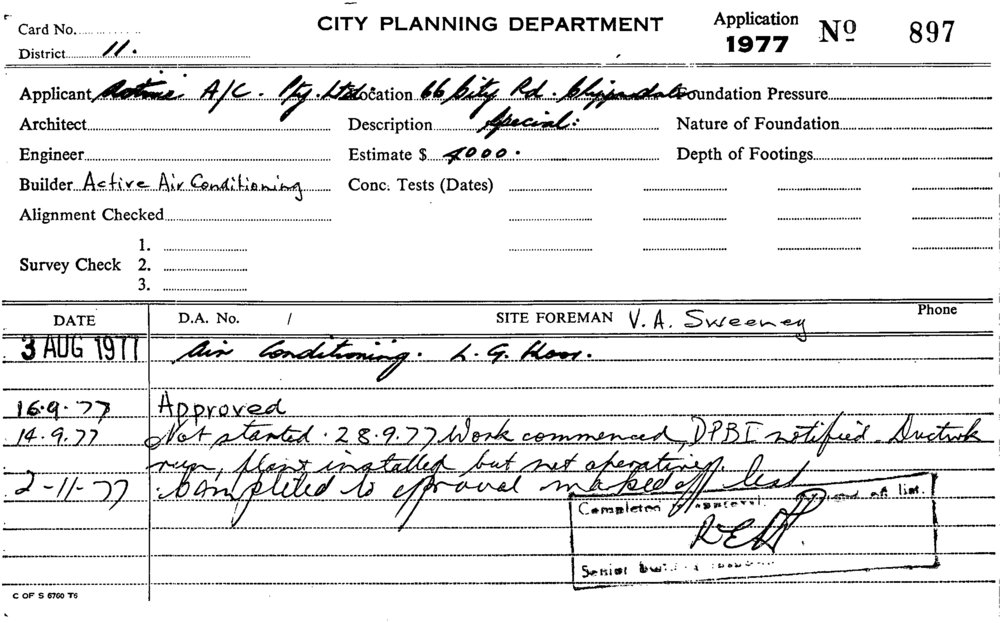 Card No.
CITY PLANNING DEPARTMENT
Application 1977 No 897
District 11.
Applicant Active A/C. Pty. Ltd Location 66 City Rd. Chippendale Foundation Pressure
Architect Description Special: Nature of Foundation
Engineer Estimate $ 4000. Depth of Footings
Builder Active Air Conditioning Conc. Tests (Dates)
Alignment Checked
1.
Survey Check 2.
3.
DATE D.A. No. / SITE FOREMAN V.A. Sweeney Phone
3 AUG 1977 Air Conditioning. L.G. Floor.
16.9.77 Approved
14.9.77 Not started. 28.9.77 Work commenced, DPBI notified. Ductwork
run, plant installed but not operating.
2-11-77 Completed to approval marked off list
Completed to approval. off list.
Senior
C OF S 6760 T6